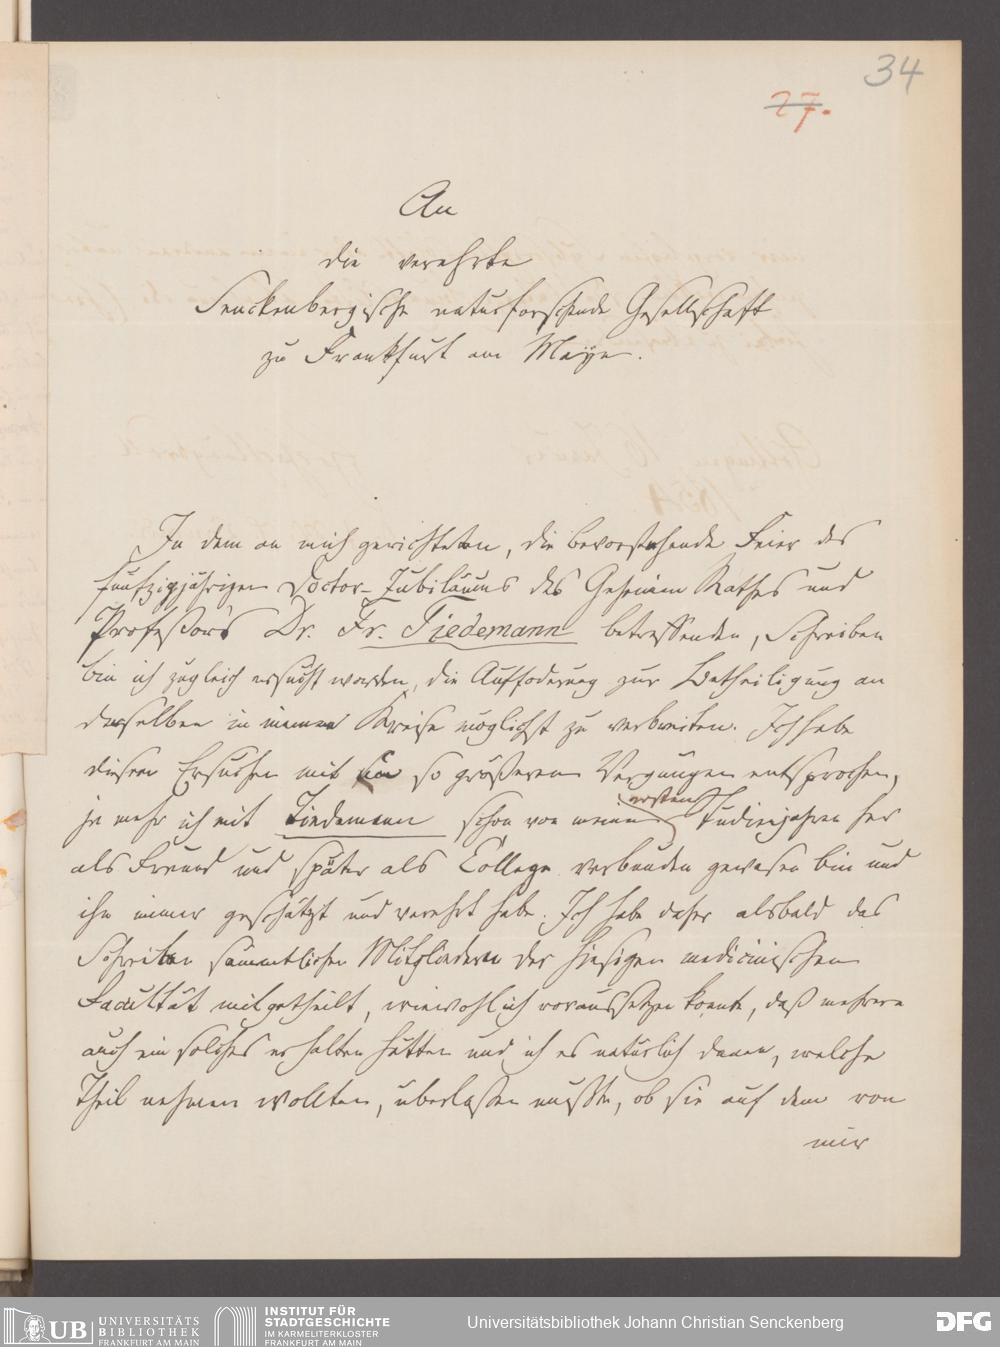 34
27.
An
die verehrte
Senckenbergische naturforschende Gesellschaft
zu Frankfurt am Mayn.
In dem an mich gerichteten, die bevorstehende Feier des
funfzigjährigen Doctor-Jubiläums des Geheimen Rathes und
Professors Dr. Fr. Tiedemann betreffenden, Schreiben
bin ich zugleich ersucht worden, die Auffoderung zur Betheiligung an
derselben in meinem Kreise möglichst zu verbreiten. Ich habe
diesem Ersuchen mit um so größerem Vergnügen entsprochen,
je mehr ich mit Tiedemann schon von meinen ersten Studienjahren her
als Freund und später als College verbunden gewesen bin und
ihn immer geschätzt und verehrt habe. Ich habe daher alsbald das
Schreiben sämmtlichen Mitgliedern der hiesigen medicinischen
Facultät mitgetheilt, wiewohl ich voraussetzen konnte, daß mehrere
auch ein solches erhalten hätten und ich es natürlich denen, welche
Theil nehmen wollten, überlaßen mußte, ob sie auf dem von
mir
UB UNIVERSITÄTS
BIBLIOTHEK
FRANKFURT AM MAIN
INSTITUT FÜR
STADTGESCHICHTE
IM KARMELITERKLOSTER
FRANKFURT AM MAIN
Universitätsbibliothek Johann Christian Senckenberg
DFG